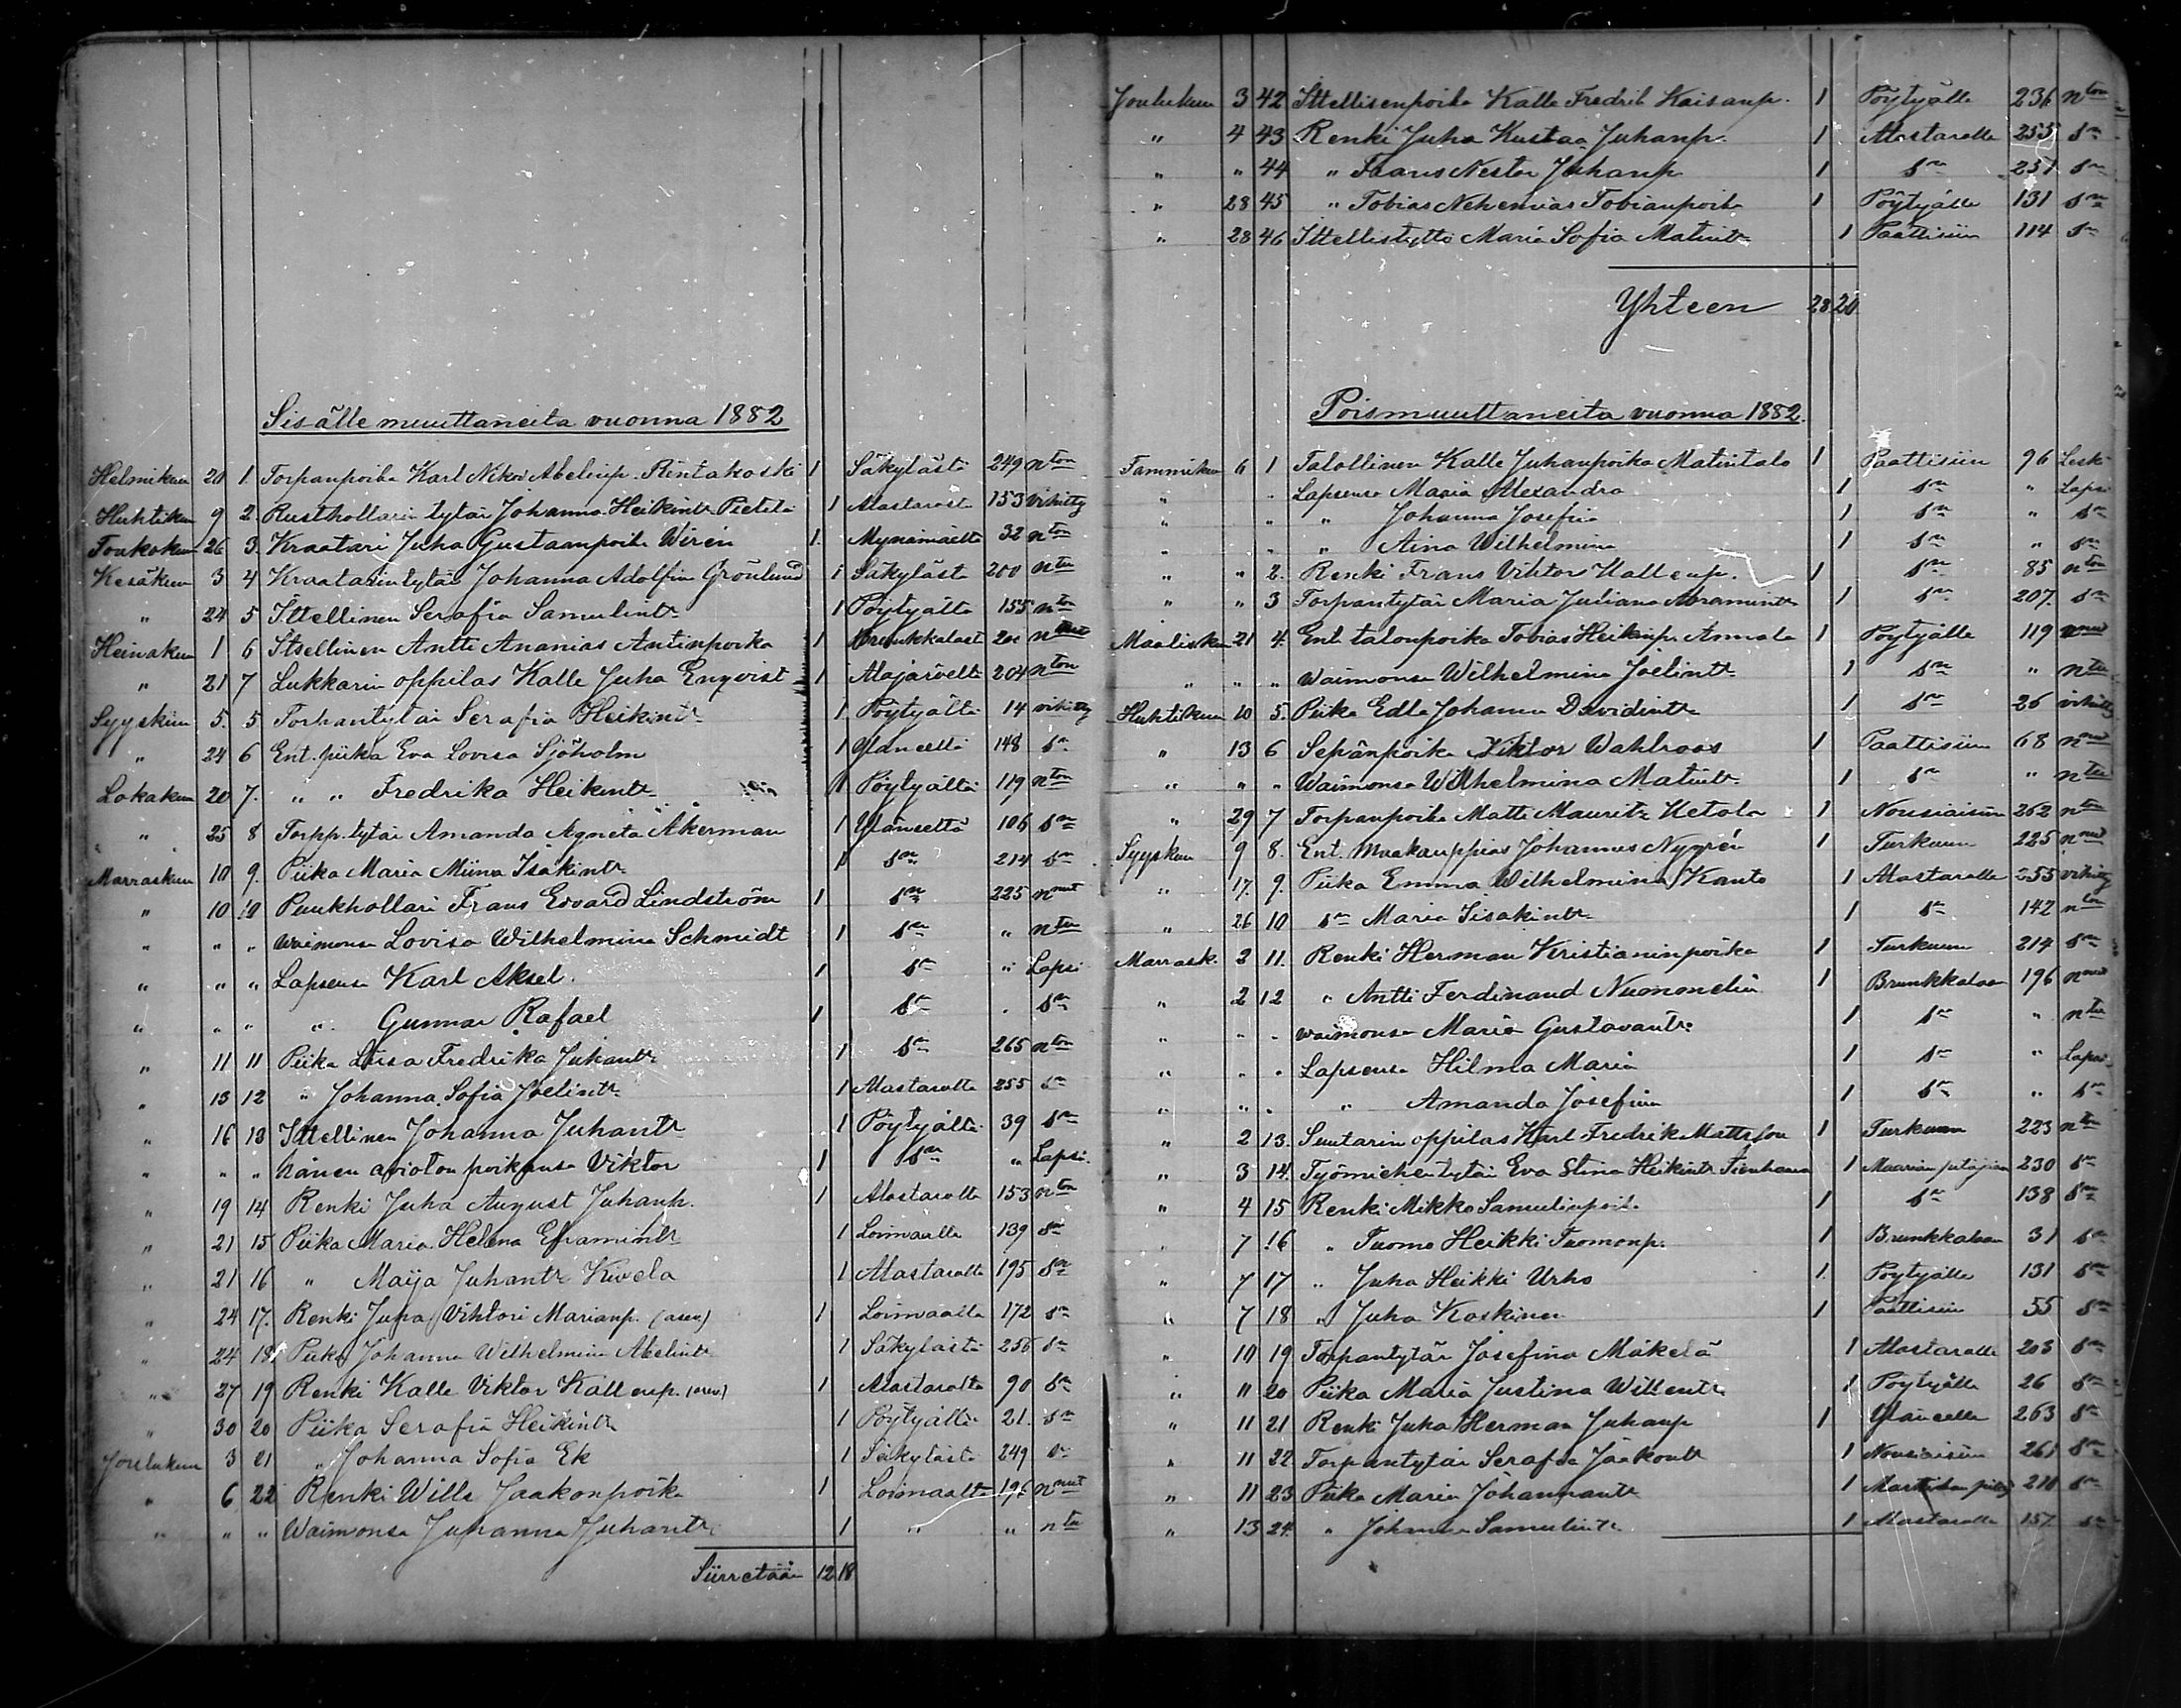 Sisälle muuttaneita vuonna 1882
Helmikuun 20 1. Torpanpoika Karl Nikod Abelinp. Rintakoski 1 Säkylästä 249 nton
Huhtikuun 9 2. Rusthollarin tytär Johanna Heikintr Pietilä 1 Alastarost 153 vihitty
Toukokuun 26 3. Kraatari Juha Gustaanpoika Wirén 1. Mynämäeltä 32 nton
Kesäkuun 3 4 Kraatarintytär Johanna Adolfina Grönlund 1 Säkylästä 200 nton
" 24 5 Ittellinen Serafia Samulintr 1 Pöytyältä 155 nton
Heinäkuun 1 6 Itsellinen Antti Ananias Antinpoika 1 Brunkkalast 201 nnut
" 21 7 Lukkarin oppilas Kalle Juha Enqvist 1 Alajärvelta 204 nton
Syyskuun 5. 5 Torpantytär Serafia Heikintr 1 Pöytyältä 14 vihitty
" 24 6 Ent. piika Eva Lovisa Sjöholm 1 Yläneeltä 148 sn
Lokakuun 20 7. " " Fredrika Heikintr 1 Pöytyältä 119 nton
" 25 8 Torpp. tytär Amanda Agneta Åkerman 1 Yläneeltä 106 sn
Marraskuun 10 9. Piika Maria Miina Isakintr 1 sn 214 sn
" 10 10 Puukhollari Frans Edvard Lindström 1 sn 225 nnut
" " " waimonsa Lovisa Wilhelmina Schmidt 1 sn " ntu
" " " Lapsensa Karl Aksel. 1 sn " Lapsi
" " " " Gunnar Rafael 1 sn . sn
" 11 11 Piika Lusa Fredrika Juhantr 1 sn 265 nton
" 13 12 " Johanna Sofia Joelintr 1 Alastarolta 255 sn
" 16 13 Ittellinen Johanna Juhantr 1 Pöytyältä 39 sn
" " " hänen avioton poikansa Viktor 1 sn " Lapsi.
" 19 14 Renki Juha August Juhanp. 1 Alastarolta 153 nton
" 21 15 Piika Maria Helena Eframintr 1 Loimaalta 139 sn
" 21 16 " Maija Juhantr Kivela 1 Alastarolta 195 sn
" 24 17. Renki Juha Vihtori Marianp. (asev) 1 Loimaalta 172 sn
" 24 18 Piika Johanna Wilhelmina Abelintr 1 Säkylästä 256 sn
" 27 19 Renki Kalle Viktor Kallenp. (asev) 1 Alastarolta 90 sn
" 30 20 Piika Serafia Heikintr 1 Pöytyältä 21. sn
Joulukuun 3 21 " Johanna Sofia Ek 1 Säkylästä 249 sn
" 6 22 Renki Wille Jaakonpoika 1 Loimaalta 196 nnut
" " " Waimonsa Juhanna Juhantr 1 " " ntu
Siirretään 12 18
Joulukuun 3 42 Ittellisenpoika Kalle Fredrik Kaisanp. 1 Pöytyälle 236 nton
" 4 43 Renki Juha Kustaa Juhanp. 1 Alastarolle 255 sn
" " 44 " Faans Nestor Juhanp 1 sn 251 sn
" 28 45 " Tobias Nehemias Tobianpoika 1 Pöytyälle 131 sn
" 28 46 Ittellistyttö Maria Sofia Matintr 1 Paattisiin 114 sn
Yhteen 28 20
Poismuuttaneita vuonna 1882.
Tammikuun 6 1 Talollinen Kalle Juhanpoika Matintalo 1 Paattisiin 96 Leski
" " Lapsensa Maria Alexandra 1 sn " Lapsi
" " " Johanna Josefina 1 sn " sn
" " " Aina Wilhelmina 1 sn " sn
" " 2. Renki Frans Viktor Kallenp. 1 sn 85 nton
" " 3 Torpantytär Maria Juliana Abramintr 1 sn 207. sn
Maaliskuun 21 4. Ent. talonpoika Tobias Heikinp. Annala 1 Pöytyälle 119 nnut
" " " waimonsa Wilhelmina Joelintr 1 sn " ntu
Huhtikuun 10 5. Piika Edla Johanna Davidintr 1 sn 26 vihitty
" 13 6 Sepänpoika Viktor Wahlroos 1 Paattisiin 68 nnut
" " " Waimonsa Wilhelmina Matintr 1 sn " ntu
" 29 7 Torpanpoika Matti Maurits Ketola 1 Nousiaisiin 262 nton
Syyskuun 9 8. Ent. Maakauppias Johannes Nygrén 1 Turkuun 225 nnut
" 17. 9. Piika Emma Wilhelmina Kanto 1 Alastarolle 255 vihitty
" 26 10 sn Maria Iisakintr 1 sn 142 nton
Marrask. 2 11. Renki Herman Kristianinpoika 1 Turkuun 214 sn
" 2 12 " Antti Ferdinand Nummelin 1 Brunkkalaan 196 nnut
" " " waimonsa Maria Gustavantr 1 sn " ntu
" " " Lapsensa Hilma Maria 1 sn " Lapsi
" " " " Amanda Josefina 1 sn " sn
" 2 13. Suutarin oppilas Karl Fredrik Mattsson 1 Turkuun 223 nton
" 3 14. Työmiehentytär Eva Stina Heikintr 1 Maarian pitäjään 230 sn
" 4 15 Renki Mikko Samulinpoik. 1 sn 138 sn
" 7 16 " Tuomo Heikki Tuomonp. 1 Brunkkalaan 31 sn
" 7 17 " Juha Heikki Urho 1. Pöytyälle 131 sn
" 7 18 " Juha Koskinen 1 Paattisiin 55 sn
" 10 19 Torpantytär Josefina Mäkelä 1 Alastarolle 203 sn
" 11 20 Piika Maria Justina Willentr 1 Pöytyälle 26 sn
" 11 21 Renki Juha Herman Juhanp 1 Yläneelle 263 sn
" 11 22. Torpantytär Serafia Jaakontr 1 Nousiaisiin 261 sn
" 11 23 Piika Maria Johannantr 1 210 sn
" 13 24. " Johanna Samulintr 1 Alastarolle 157. sn